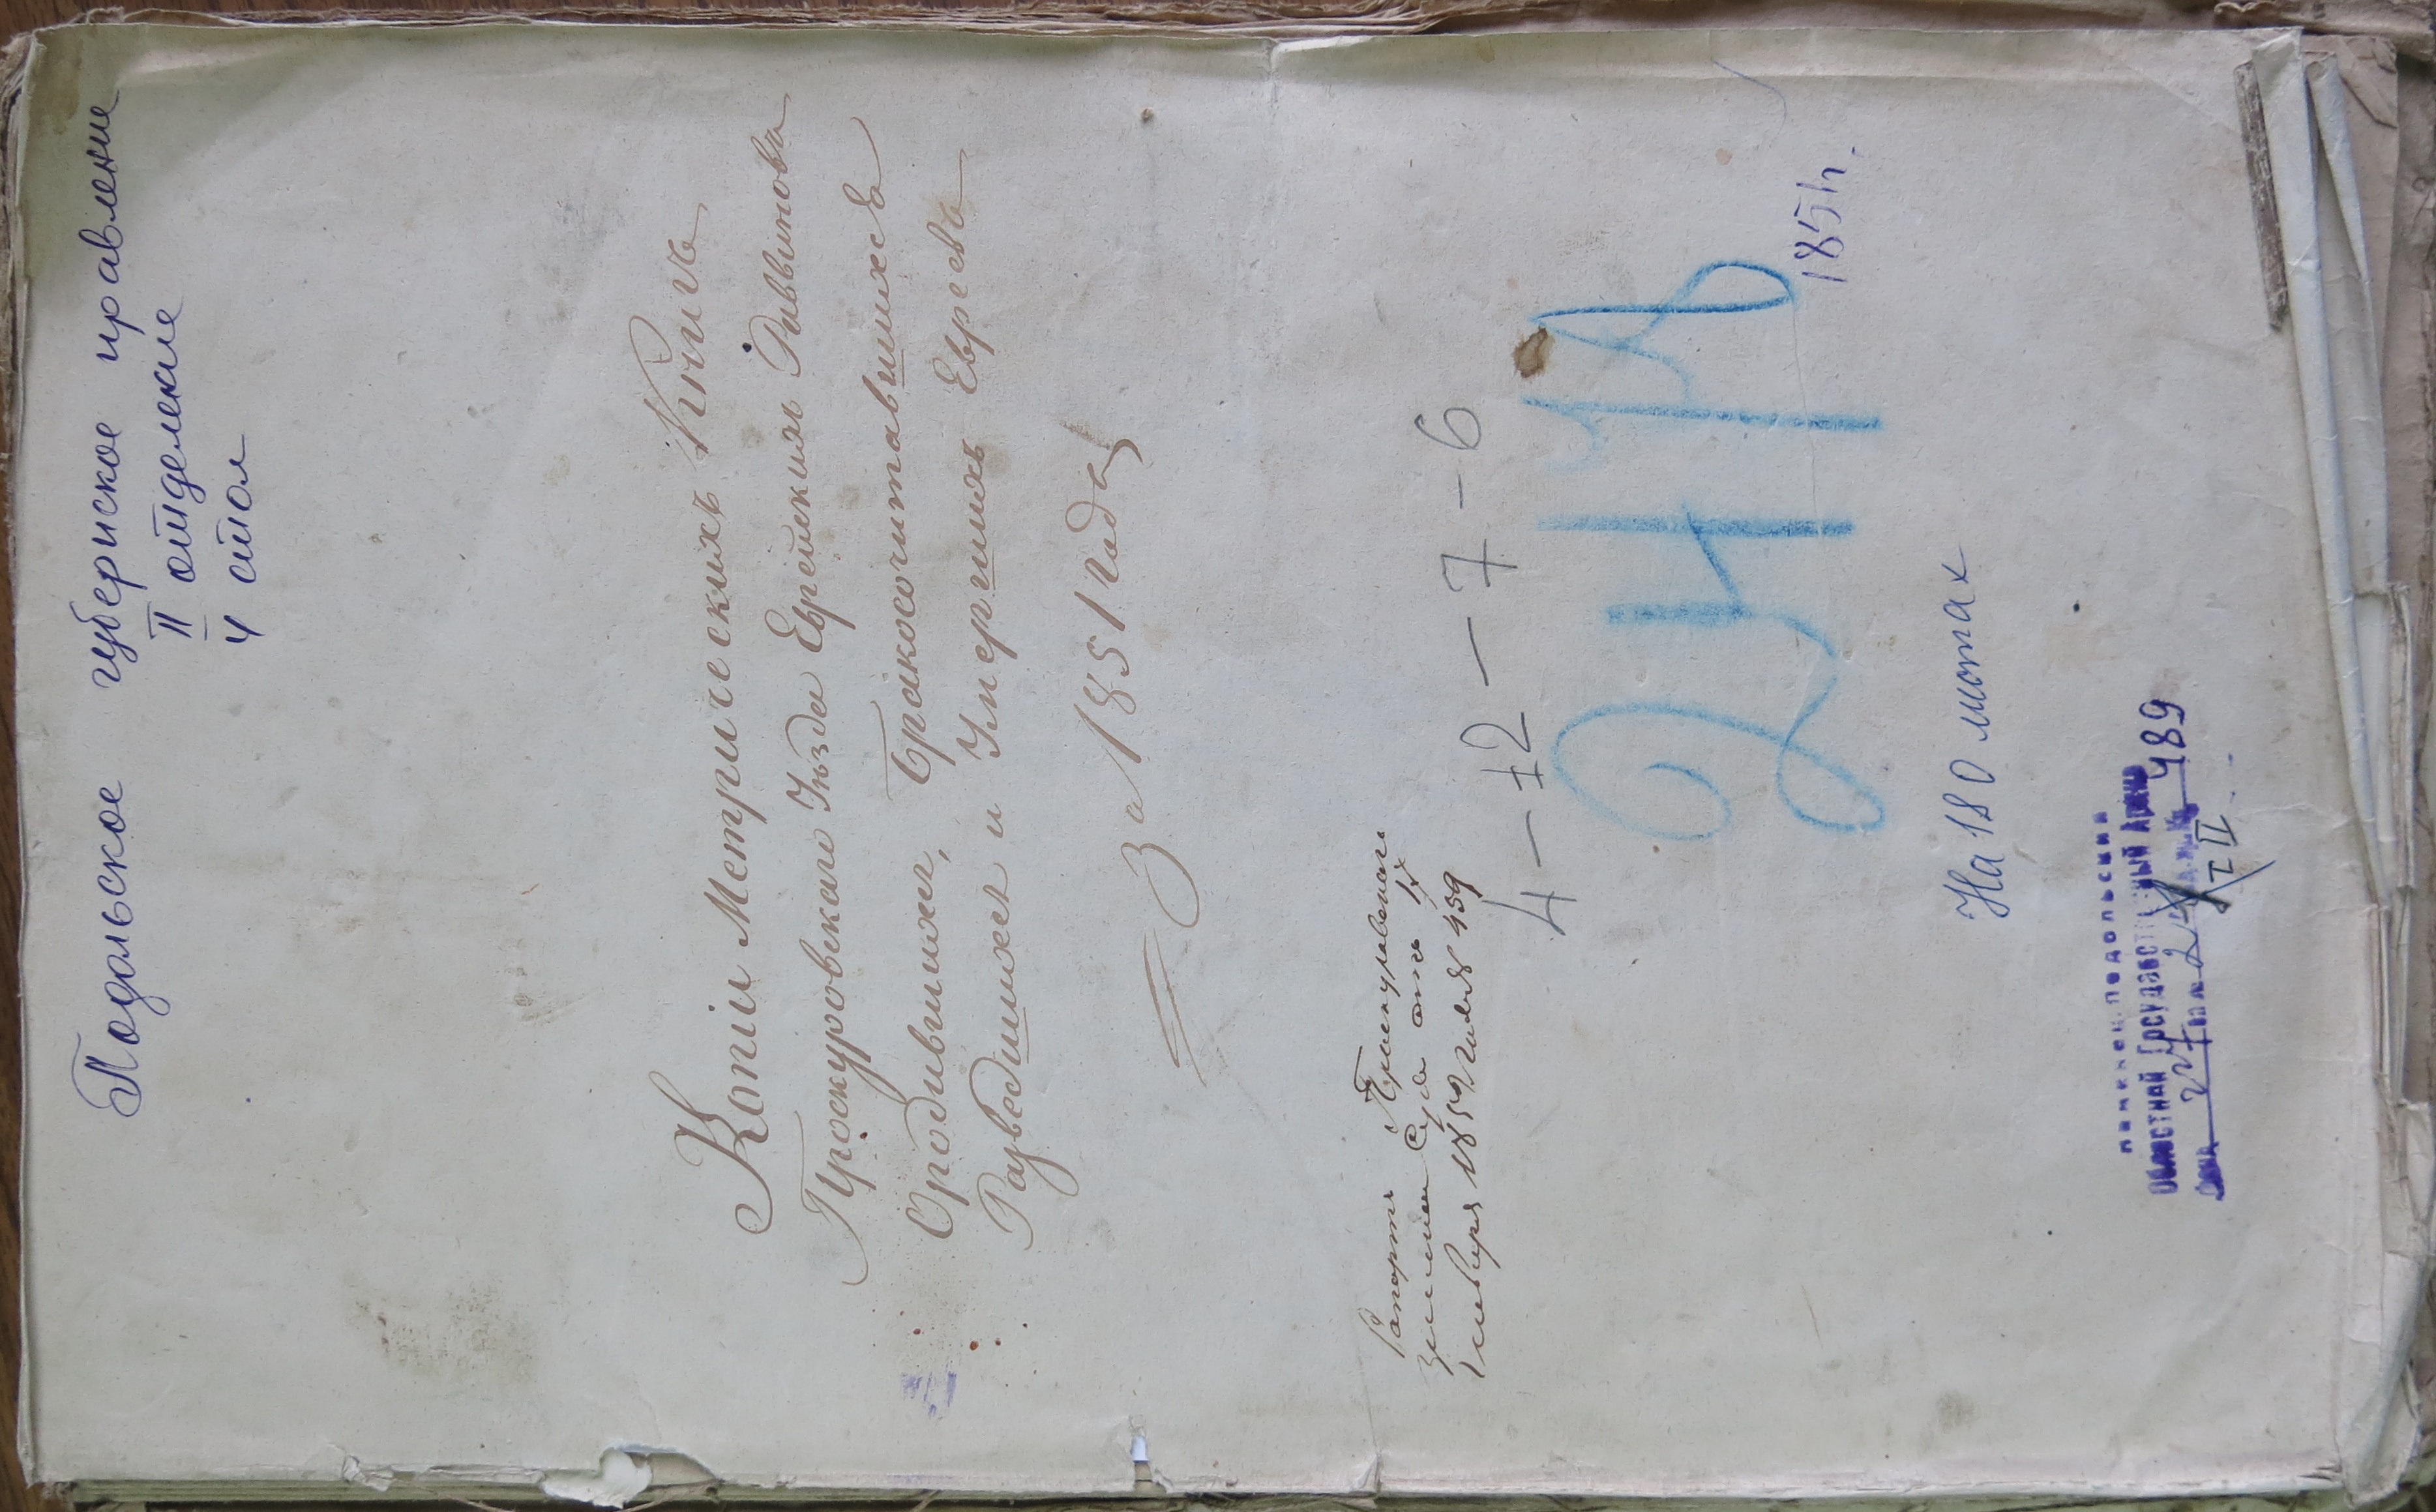 Подольское губернское правление
II отделение
4 стол
Копіи Метрическихъ Книгъ
Проскуровскаго Уѣзда Еврейскихъ Раввиновъ
О родившихся, бракосочитавшихся
Разведшихся и Умершихъ Евреевъ
За 1851 Года
Рапортъ Проскуровскаго
земскаго Суда отъ
Генваря 1854 года № 459
4 — 12 — 7 - 6
185
На 180 листах
КАМЕНЕЦ-ПОДОЛЬСКИЙ
ОБЛАСТНОЙ ГОСУДАРСТВЕННЫЙ АРХИВ
489